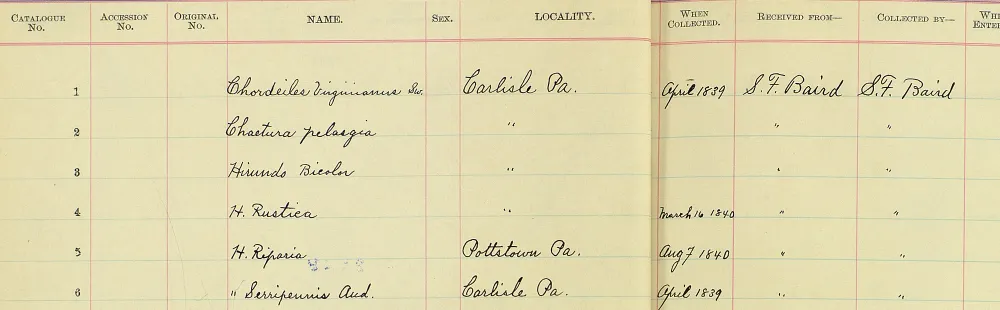 CATALOGUE No. ACCESSION No. ORIGINAL No. NAME. SEX. LOCALITY. WHEN COLLECTED. RECEIVED FROM— COLLECTED BY— WHE ENTER
1 Chordeiles Virginianus Sw. Carlisle Pa. April 1839 S. F. Baird S. F. Baird
2 Chaetura pelasgia " " "
3 Hirundo Bicolor " " "
4 H. Rustica " March 16 1840 " "
5 H. Riparia Pottstown Pa. Aug 7 1840 " "
6 " Serripennis Aud. Carlisle Pa. April 1839 " "